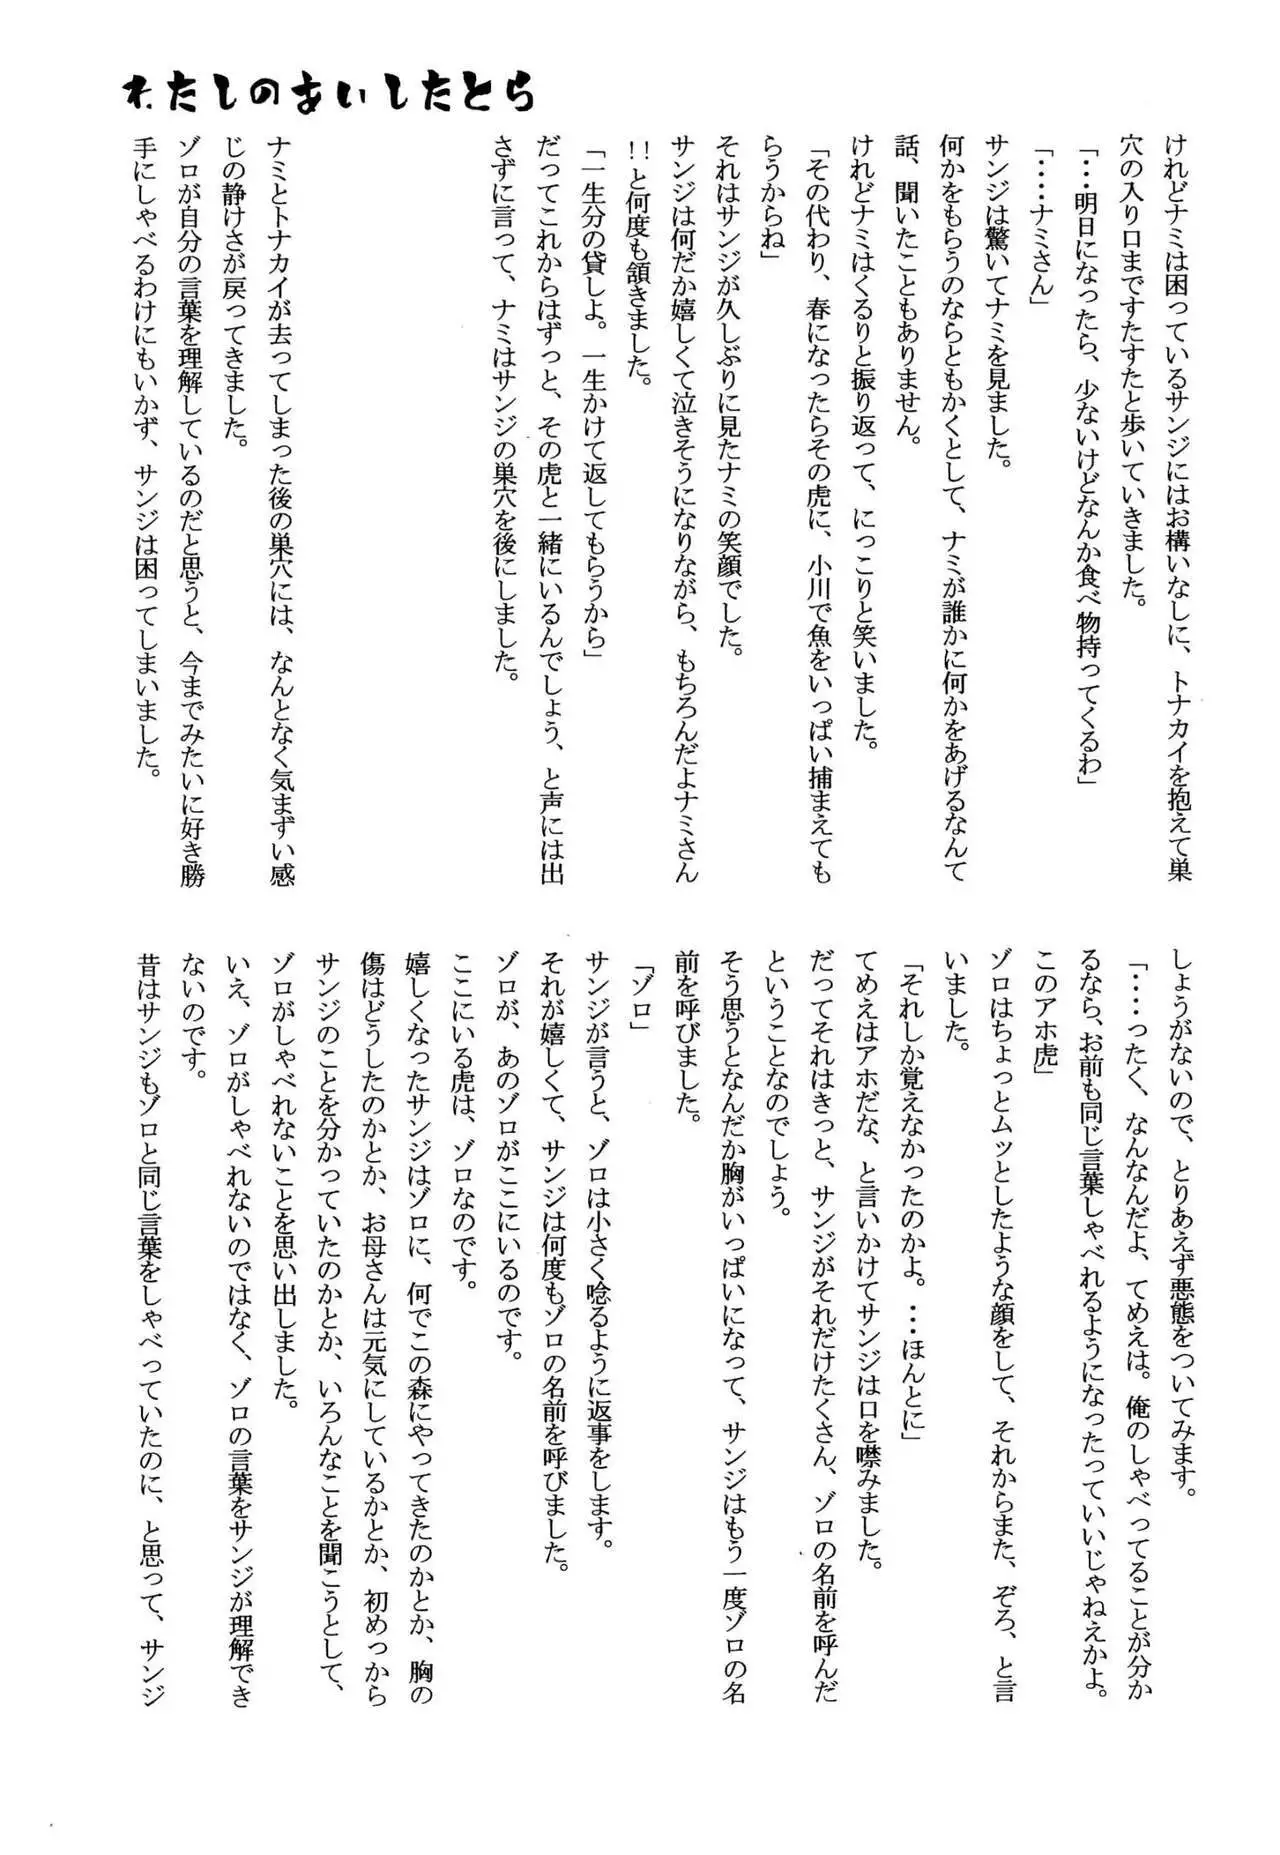 わたしのあいしたとら
けれどナミは困っているサンジにはお構いなしに、トナカイを抱えて巣
穴の入り口まですたすたと歩いていきました。
「・・・明日になったら、少ないけどなんか食べ物持ってくるわ」
「・・・・ナミさん」
サンジは驚いてナミを見ました。
何かをもらうのならともかくとして、ナミが誰かに何かをあげるなんて
話、聞いたこともありません。
けれどナミはくるりと振り返って、にっこりと笑いました。
「その代わり、春になったらその虎に、小川で魚をいっぱい捕まえても
らうからね」
それはサンジが久しぶりに見たナミの笑顔でした。
サンジは何だか嬉しくて泣きそうになりながら、もちろんだよナミさん
!!と何度も頷きました。
「一生分の貸しよ。一生かけて返してもらうから」
だってこれからはずっと、その虎と一緒にいるんでしょう、と声には出
さずに言って、ナミはサンジの巣穴を後にしました。
ナミとトナカイが去ってしまった後の巣穴には、なんとなく気まずい感
じの静けさが戻ってきました。
ゾロが自分の言葉を理解しているのだと思うと、今までみたいに好き勝
手にしゃべるわけにもいかず、サンジは困ってしまいました。
しょうがないので、とりあえず悪態をついてみます。
「・・・・ったく、なんなんだよ、てめえは。俺のしゃべってることが分か
るなら、お前も同じ言葉しゃべれるようになったっていいじゃねえかよ。
このアホ虎」
ゾロはちょっとムッとしたような顔をして、それからまた、ぞろ、と言
いました。
「それしか覚えなかったのかよ。・・・ほんとに」
てめえはアホだな、と言いかけてサンジは口を噤みました。
だってそれはきっと、サンジがそれだけたくさん、ゾロの名前を呼んだ
ということなのでしょう。
そう思うとなんだか胸がいっぱいになって、サンジはもう一度ゾロの名
前を呼びました。
「ゾロ」
サンジが言うと、ゾロは小さく唸るように返事をします。
それが嬉しくて、サンジは何度もゾロの名前を呼びました。
ゾロが、あのゾロがここにいるのです。
ここにいる虎は、ゾロなのです。
嬉しくなったサンジはゾロに、何でこの森にやってきたのかとか、胸の
傷はどうしたのかとか、お母さんは元気にしているかとか、初めっから
サンジのことを分かっていたのかとか、いろんなことを聞こうとして、
ゾロがしゃべれないことを思い出しました。
いえ、ゾロがしゃべれないのではなく、ゾロの言葉をサンジが理解でき
ないのです。
昔はサンジもゾロと同じ言葉をしゃべっていたのに、と思って、サンジ